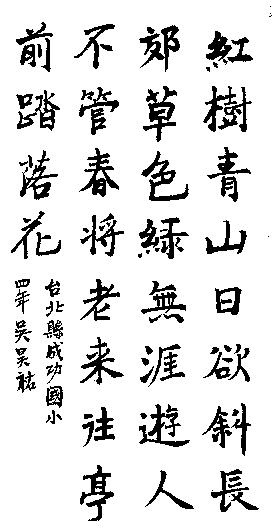 紅樹青山日欲斜長
郊草色綠無涯遊人
不管春将老来往亭
前踏落花
台北縣成功國小
四年吳昊祐